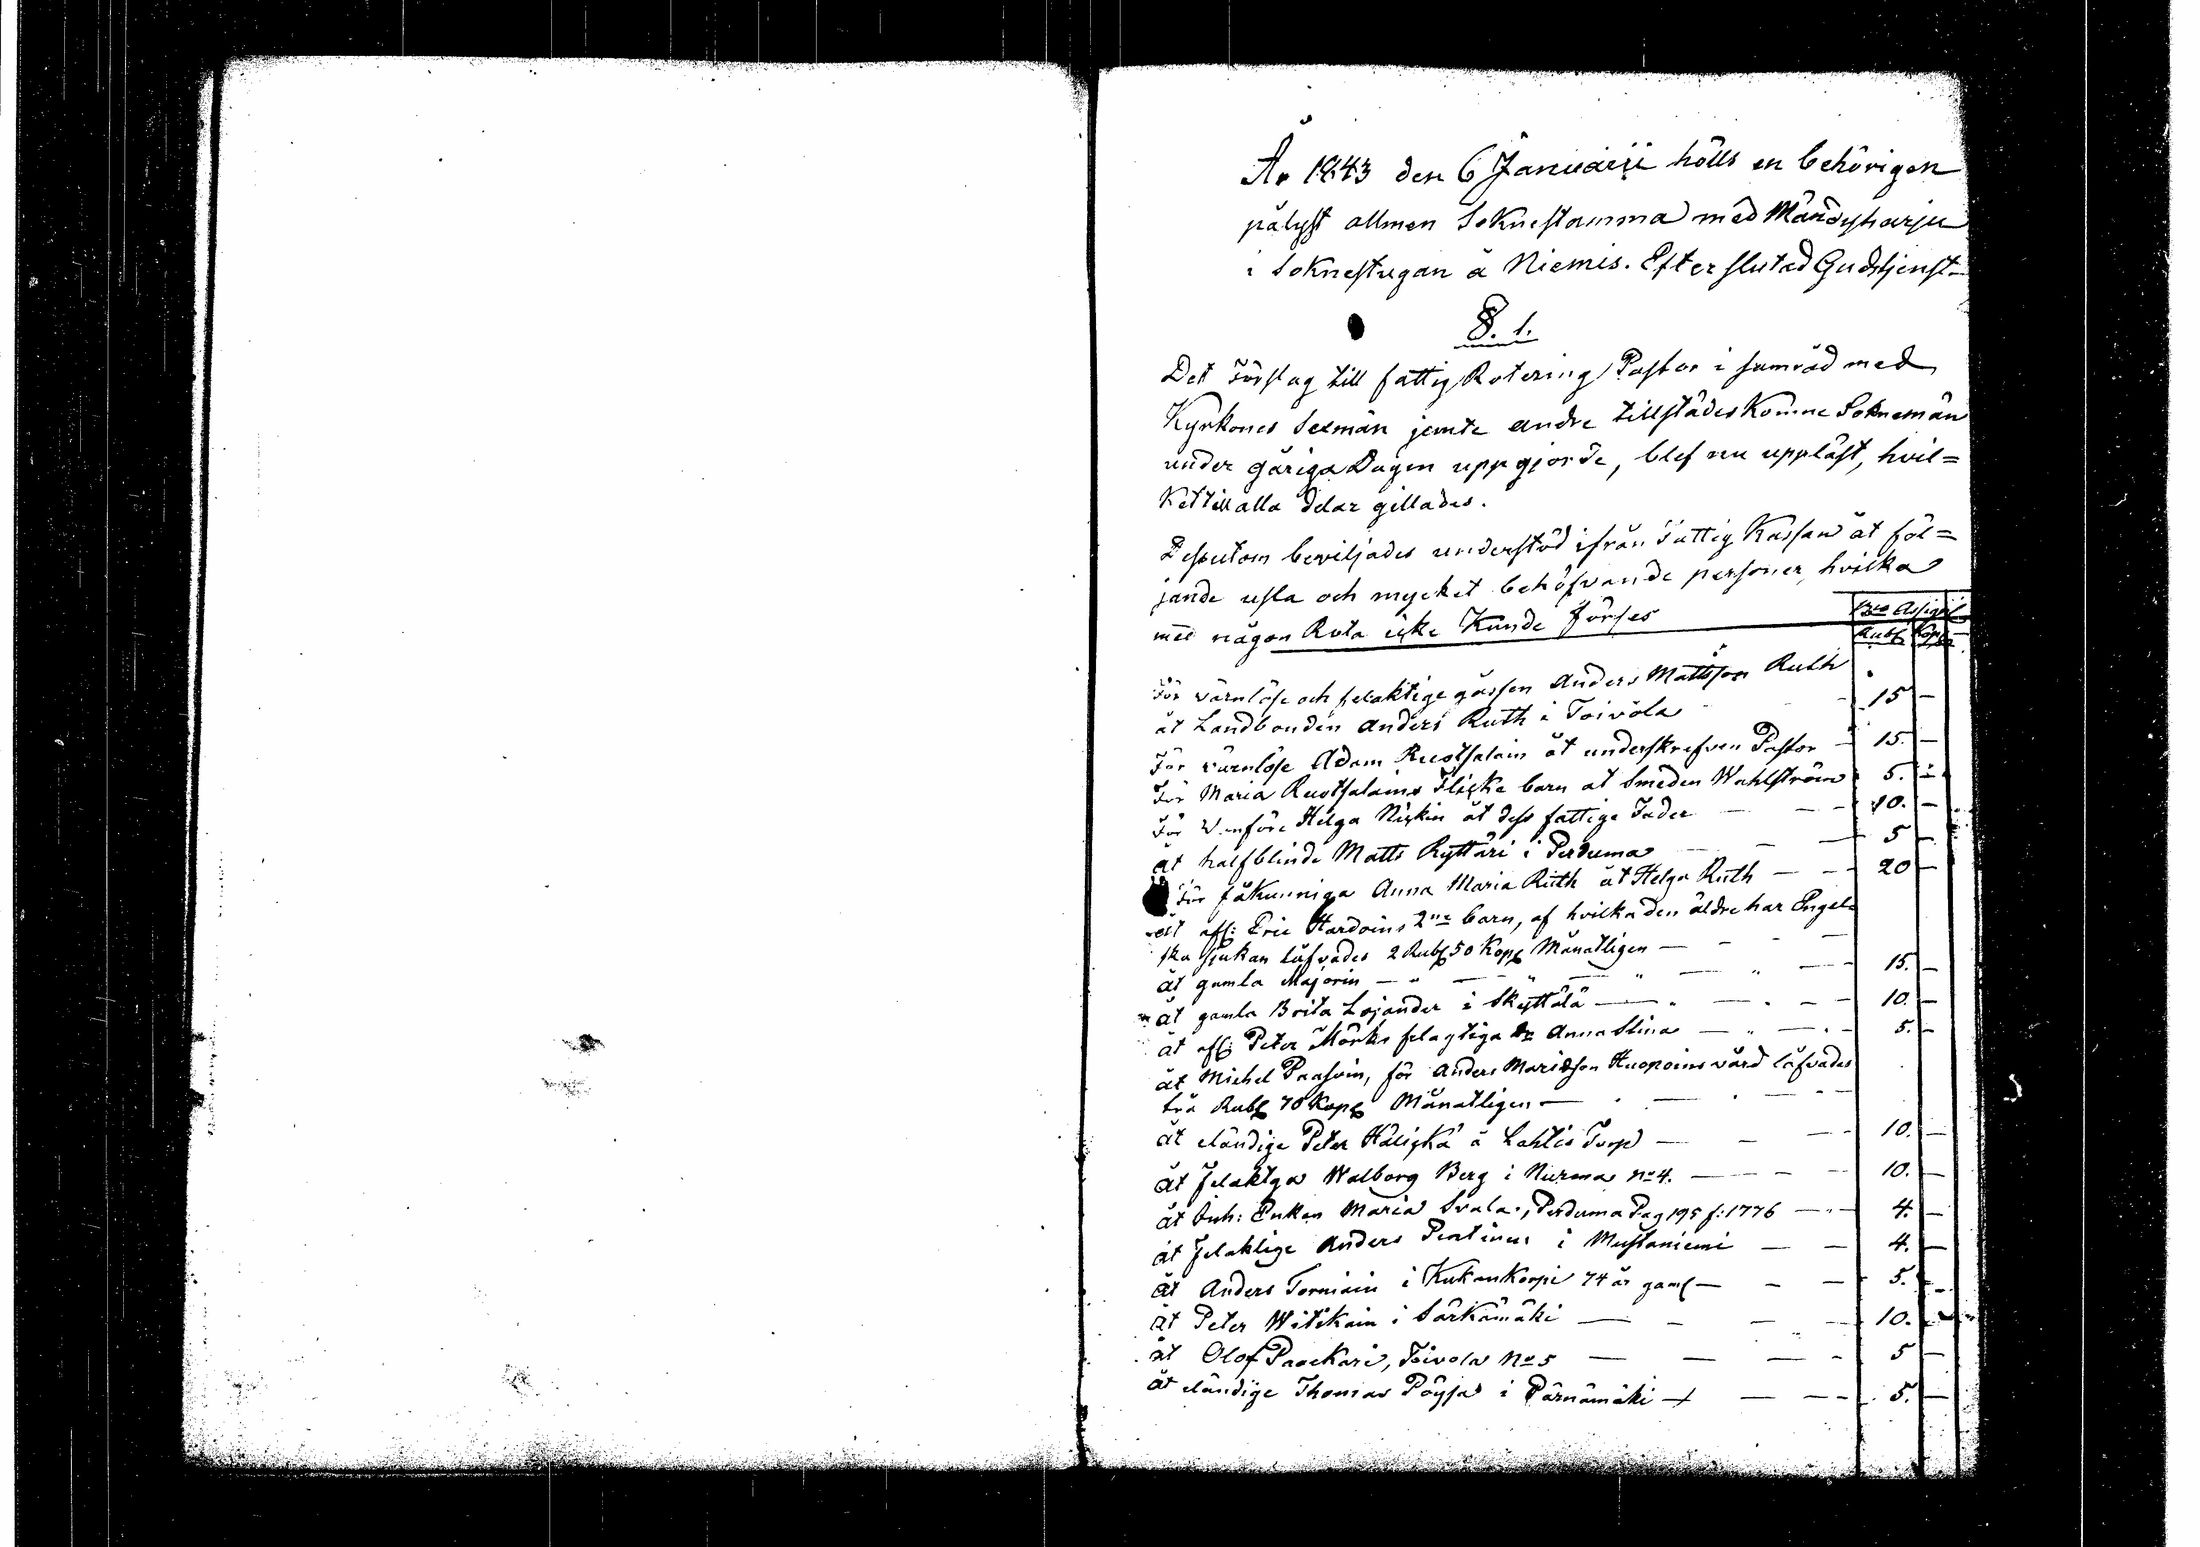 År 1843 den 6 Januarii hölls en behörigen
pålyst allmen Soknestamma med Mändyharju
i Soknestugan å Niemis. Efter slutad Gudstjenst
§. 1.
Det Förslag till fattig Rotering Pastor i samråd med
Kyrkones Sexmän jemte andre tillstädes Komne Soknemän
under gåriga Dagen uppgjorde, blef nu uppläst, hvil=
Ket till alla delar gillades.
Dessutom beviljades understöd ifrån Fattig Kassan åt föl=
jande usla och mycket behöfvande personer, hvilka
med någon Rota icke Kunde förses
Bco Assign
Rubl Kop
För värnlöse och felaktige gåssen Anders Mattsson Ruth
åt Landbonden Anders Ruth i Toivola 15 —
För värnlöse Adam Ruotsalain åt underskrefven Pastor 15. —
För Maria Ruotsalains Flicke barn åt Smeden Wahlström 5. —
För Vanföre Helga Niskin åt dess fattige Fader — — — 10. —
åt halfblinde Matts Ryttäri i Perduma — — — 5 —
För fåkunniga Anna Maria Ruth åt Helga Ruth — — 20 —
åt afl: Eric Hardoins 2ne barn, af hvilka den äldre har Engel
ska sjukan låfvades 2 Rubl 50 Kop Månatligen —
åt gamla Majorin — 15. —
åt gamla Brita Lojander i Skyttälä — 10. —
åt afl: Peter Mörks felagtiga dr Anna Stina — 5. —
åt Michel Paasvin, för Anders Maridson Huopoins vård låfvades
två Rubl 70 Kop Månatligen —
åt eländige Peter Häliskä å Lahtis Torp — 10. —
åt felaktga Walborg Berg i Nurma No 4. — 10. —
åt Inh: Enkan Maria Svala, Perduma Pag 195 f: 1776 — 4. —
åt felaktige Anders Pentinen i Mustaniemi — — 4. —
åt Anders Torniain i Kukonkorpi 74 år gaml — — 5. —
åt Peter Witikain i Särkämäki — 10. —
åt Olof Paackari, Toivola No 5 — — — 5 —
åt eländige Thomas Pöysä i Pärnämäki — — — 5. —